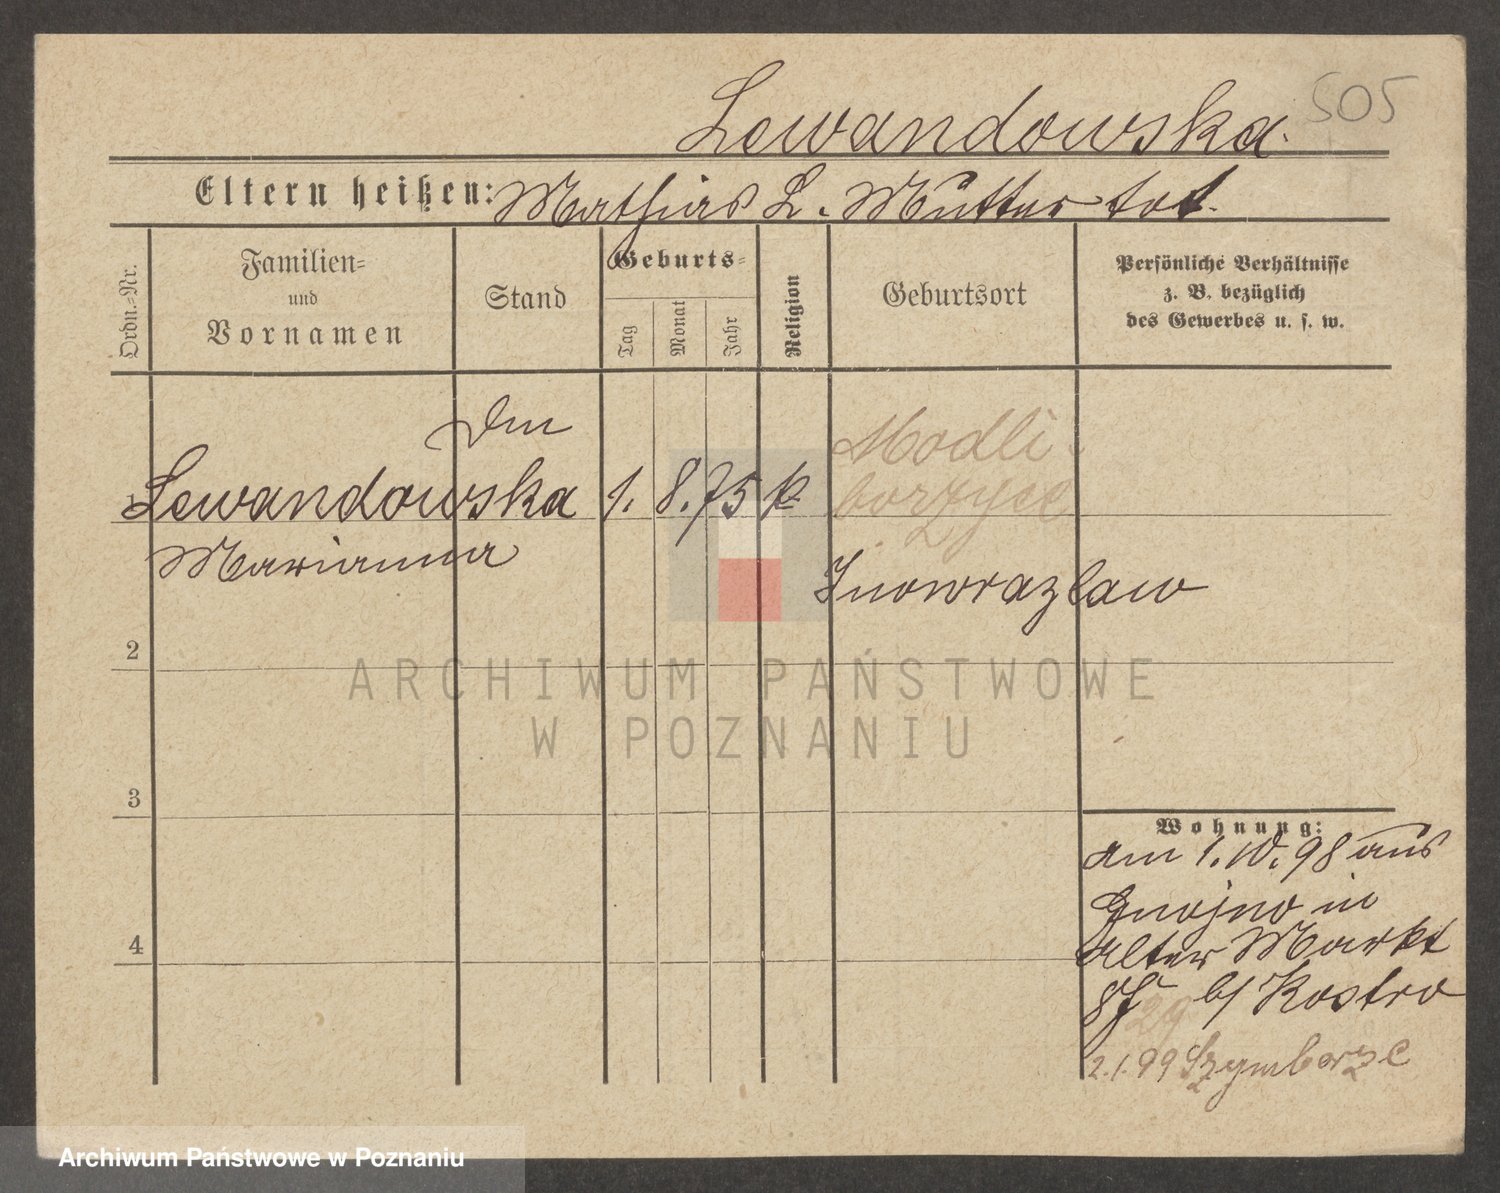 505
Lewandowska.
Eltern heißen: Mathias L. Mutter tot.
Ordn.-Nr.
Familien-
und
Vornamen
Stand
Geburts-
Tag
Monat
Jahr
Religion
Geburtsort
Persönliche Verhältnisse
z. B. bezüglich
des Gewerbes u. s. w.
Modli-
1 Lewandowska 1. 8. 75 k. borzyce
Marianna
Inowrazlaw
2
3
4
Wohnung:
am 1. 10. 98 aus
Gnojno in
Alter Markt
b/ Kostro
29
2.1.99 Szymborze
ARCHIWUM PAŃSTWOWE
W POZNANIU
Archiwum Państwowe w Poznaniu